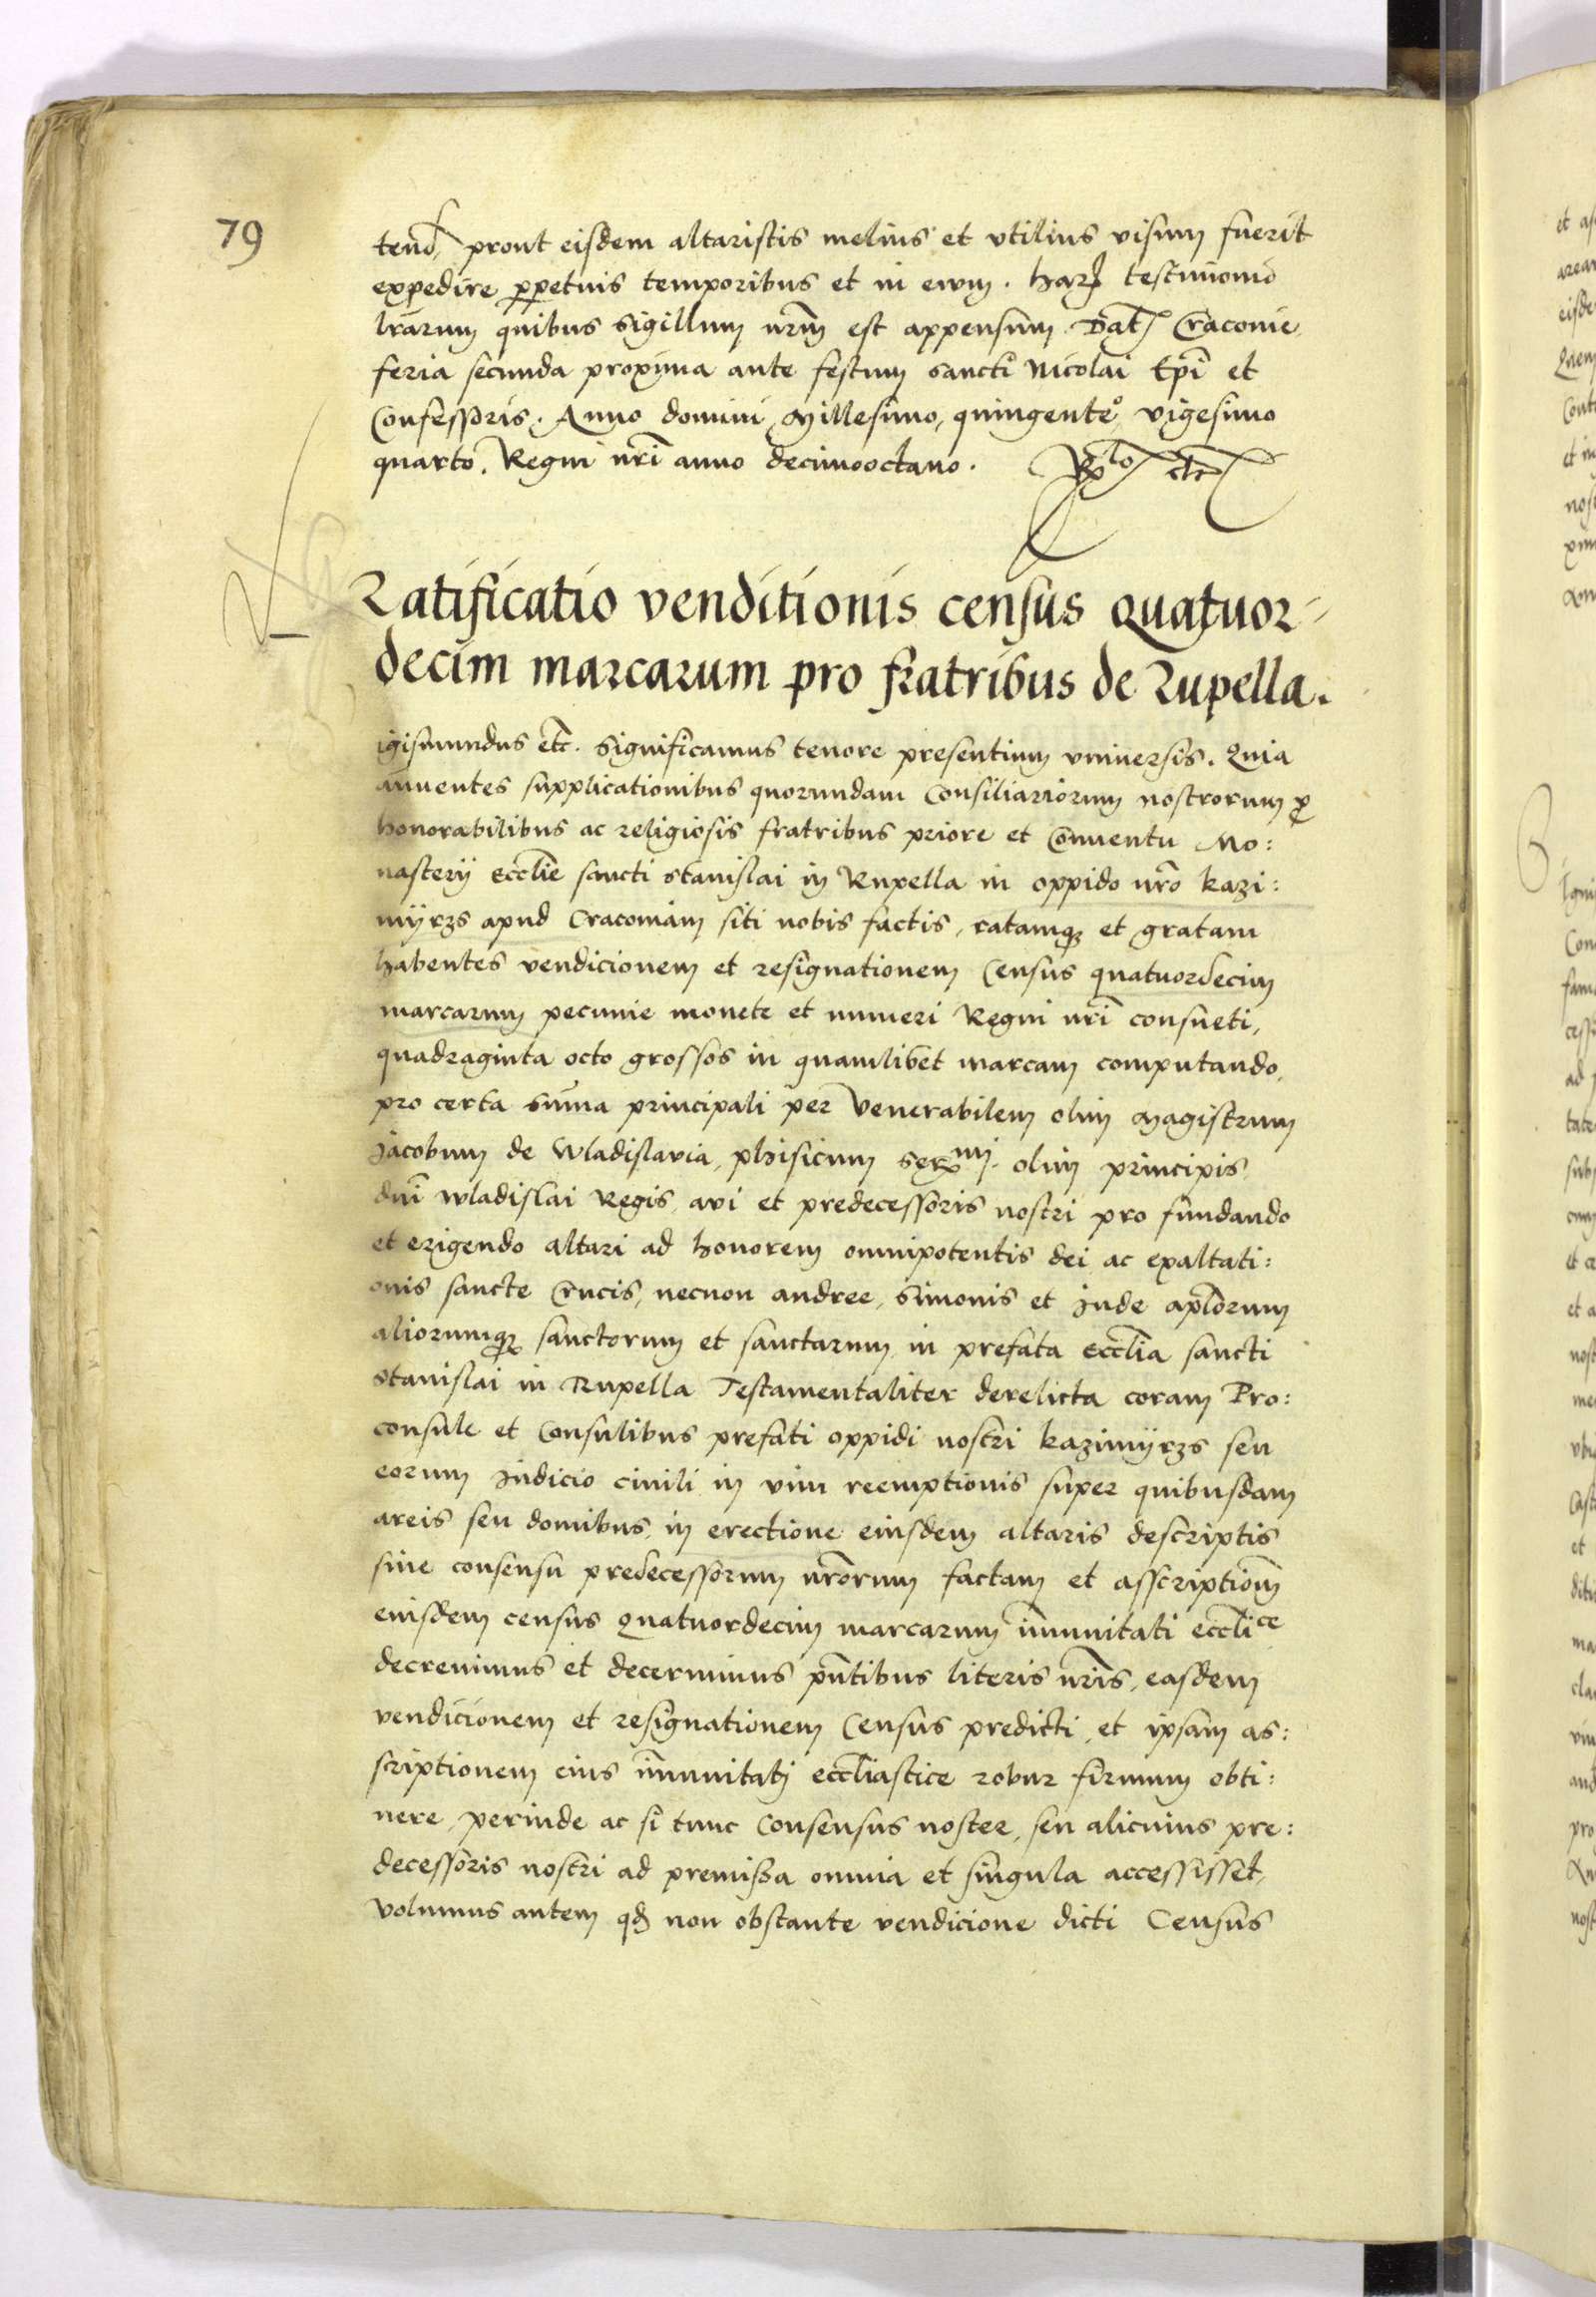 79
tend, prout eisdem altaristis melius et vtilius visum fuerit
expedire ppetuis temporibus et in evum. harꝝ testimonio
lrarum quibus sigillum nrm est appensum. Dat Cracovie
feria secunda proxima ante festum sancti Nicolai Epi et
Confessoris. Anno domini Millesimo, quingenteº vigesimo
quarto. Regni nri anno decimooctavo.
Ratificatio venditionis census Quatuor=
decim marcarum pro fratribus de Rupella.
igismundus etc. Significamus tenore presentium vniversis. Quia
annuentes supplicationibus quorundam Consiliariorum nostrorum p
honorabilibus ac religiosis fratribus priore et Conventu Mo:
nasterij Ecclie sancti Stanislai in Rupella in oppido nro Kazi:
mijrzs apud Cracoviam siti nobis factis, ratamqꝫ et gratam
habentes vendicionem et resignationem Census quatuordecim
marcarum pecunie monete et numeri Regni nri consueti,
quadraginta octo grossos in quamlibet marcam computando,
pro certa suma principali per Venerabilem olim Magistrum
Jacobum de Wladislavia, phisicum serᵐⁱ olim principis
dni Wladislai Regis, avi et predecessoris nostri pro fundando
et erigendo altari ad honorem omnipotentis dei ac exaltati:
onis sancte Crucis, necnon andree, Simonis et Jude aplorum
aliorumqꝫ sanctorum et sanctarum in prefata Ecclia sancti
Stanislai in Rupella Testamentaliter derelicta coram Pro:
consule et Consulibus prefati oppidi nostri Kazimijrzs seu
eorum Judicio civili in vim reemptionis super quibusdam
areis seu domibus, in erectione eiusdem altaris descriptis
sine consensu predecessorum nrorum factam et asscriptiom
eiusdem census Quatuordecim marcarum imunitati ecclice
decrevimus et decernimus pntibus literis nris, easdem
vendicionem et resignationem Census predicti, et ipsam as:
scriptionem eius imunitatj eccliastice robur firmum obti:
nere, perinde ac si tunc Consensus noster, seu alicuius pre:
decessoris nostri ad premissa omnia et singula accessisset,
volumus autem qd non obstante vendicione dicti Census